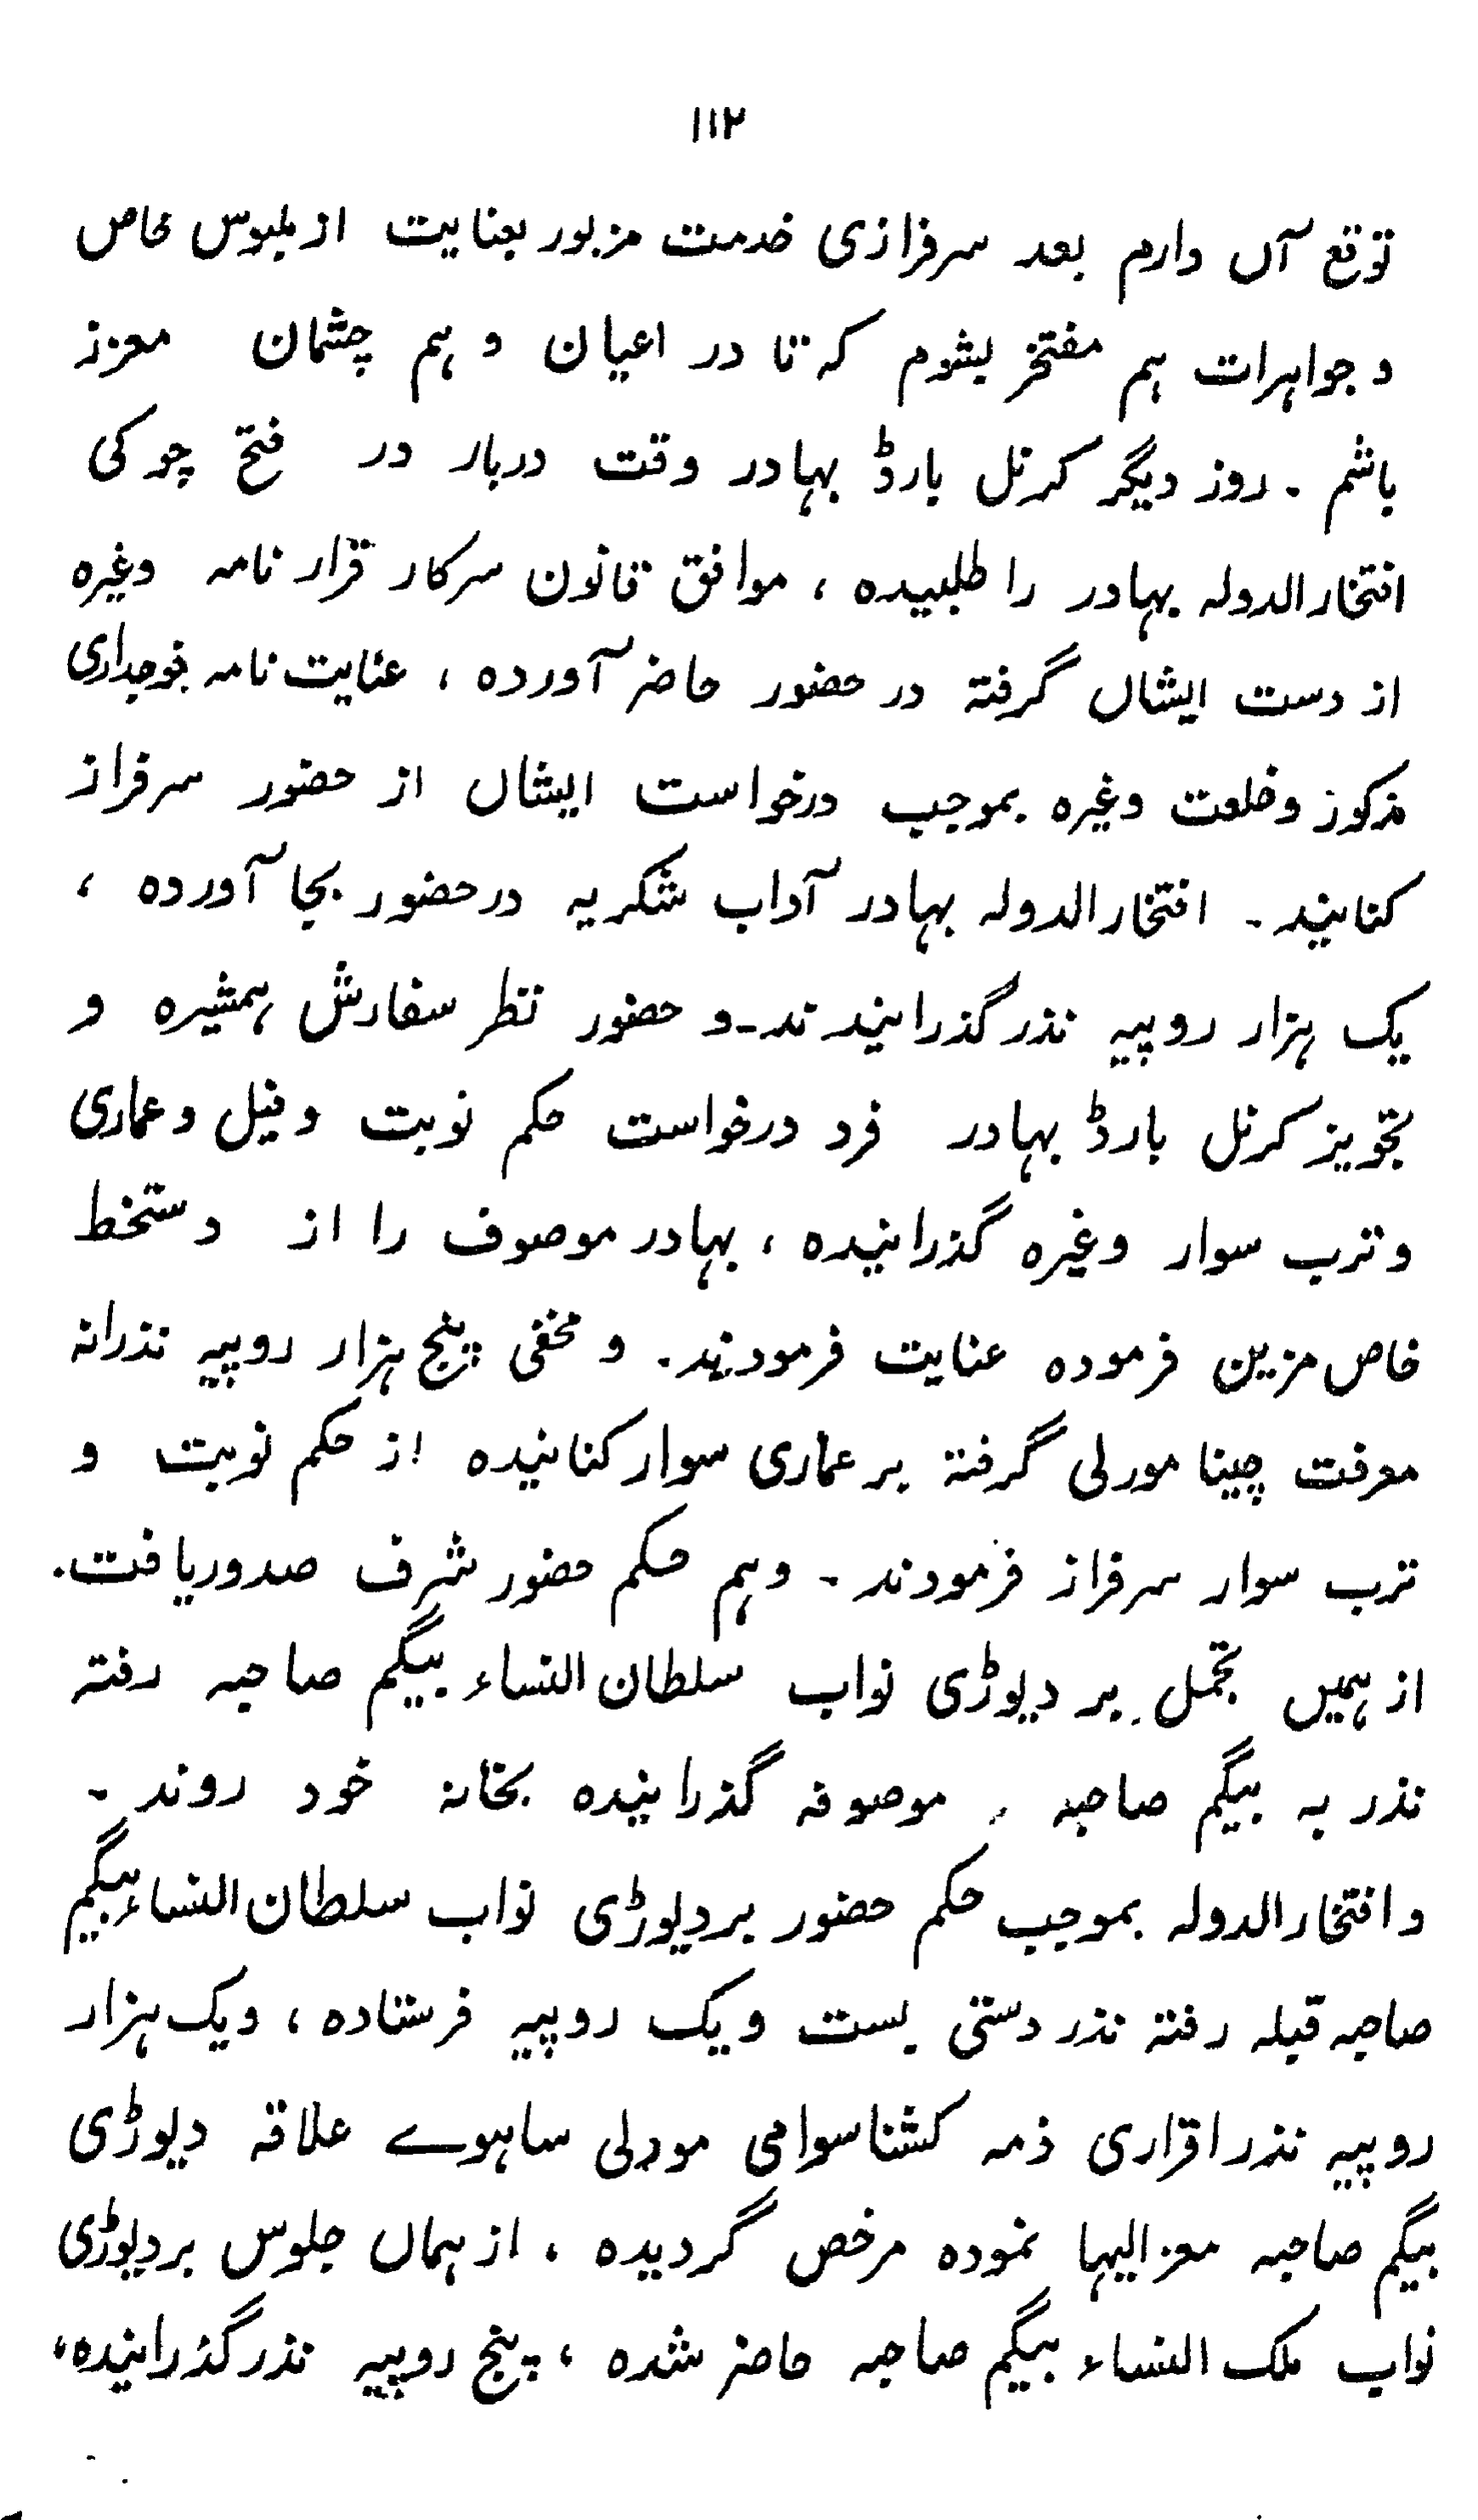 ۱۱۲
توقع آں دارم بعد سرفرازی خدمت مزبور بعنایت از ملبوس خاص
و جواہرات ہم مفتخر بشوم کہ تا در اعیان و ہم چشمان معزز
باشم ۔ روز دیگر کرنل بارڈ بہادر وقت دربار در فتح چوکی
افتخارالدولہ بہادر را طلبیدہ ، موافق قانون سرکار قرار نامہ وغیرہ
از دست ایشاں گرفتہ در حضور حاضر آوردہ ، عنایت نامہ فوجداری
مذکور وخلعت وغیرہ بموجب درخواست ایشاں از حضور سرفراز
کنانیند ۔ افتخارالدولہ بہادر آداب شکریہ درحضور بجا آوردہ ،
یک ہزار روپیہ نذر گذرانیدند ۔ و حضور نظر سفارش ہمشیرہ و
تجویز کرنل بارڈ بہادر فرد درخواست حکم نوبت وفیل وعماری
وترب سوار وغیرہ گذرانیدہ ، بہادر موصوف را از دستخط
خاص مزین فرمودہ عنایت فرمودند ۔ و مخفی پنج ہزار روپیہ نذرانہ
معرفت چینا مورلی گرفتہ بر عماری سوار کنانیدہ از حکم نوبت و
ترب سوار سرفراز فرمودند ۔ وہم حکم حضور شرف صدور یافت ۔
از ہمیں تجمل بر دیوڑی نواب سلطان النساء بیگم صاحبہ رفتہ
نذر بہ بیگم صاحبہ موصوفہ گذرانیدہ بخانہ خود روند ۔
و افتخارالدولہ بموجب حکم حضور بردیوڑی نواب سلطان النساء بیگم
صاحبہ قبلہ رفتہ نذر دستی بست ویک روپیہ فرستادہ ، ویک ہزار
روپیہ نذر اقراری ذمہ کشناسوامی مودلی ساہوے علاقہ دیوڑی
بیگم صاحبہ معز الیہا نمودہ مرخص گردیدہ ، از ہماں جلوس بردیوڑی
نواب ملک النساء بیگم صاحبہ حاضر شدہ ، پنج روپیہ نذر گذرانیدہ ،